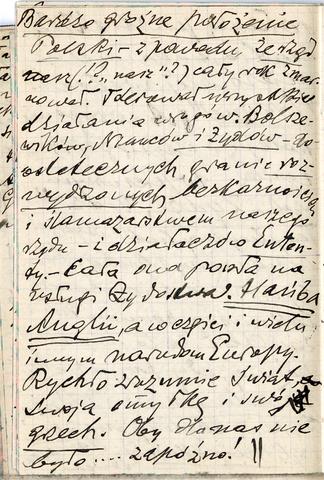 Bardzo groźne położenie
Polski – z powodu, że rząd
nasz (!? „nasz"?) cały rok zmar-
nował. Tolerował wszystkie
działania wrogów, Bolsze-
wików, Niemców i Żydów – do
ostatecznych granic roz-
wydrzonych bezkarnością
i ślamazarstwem naszego
rządu – i działaczów Enten-
ty. – Cała ona poszła na
usługi Żydostwa. Hańba
Anglii, a w części i wielu
innym narodom Europy.
Rychło zrozumie Świat
swoją omyłkę i swój
grzech. Oby dla nas nie
było .... zapóźno! ||